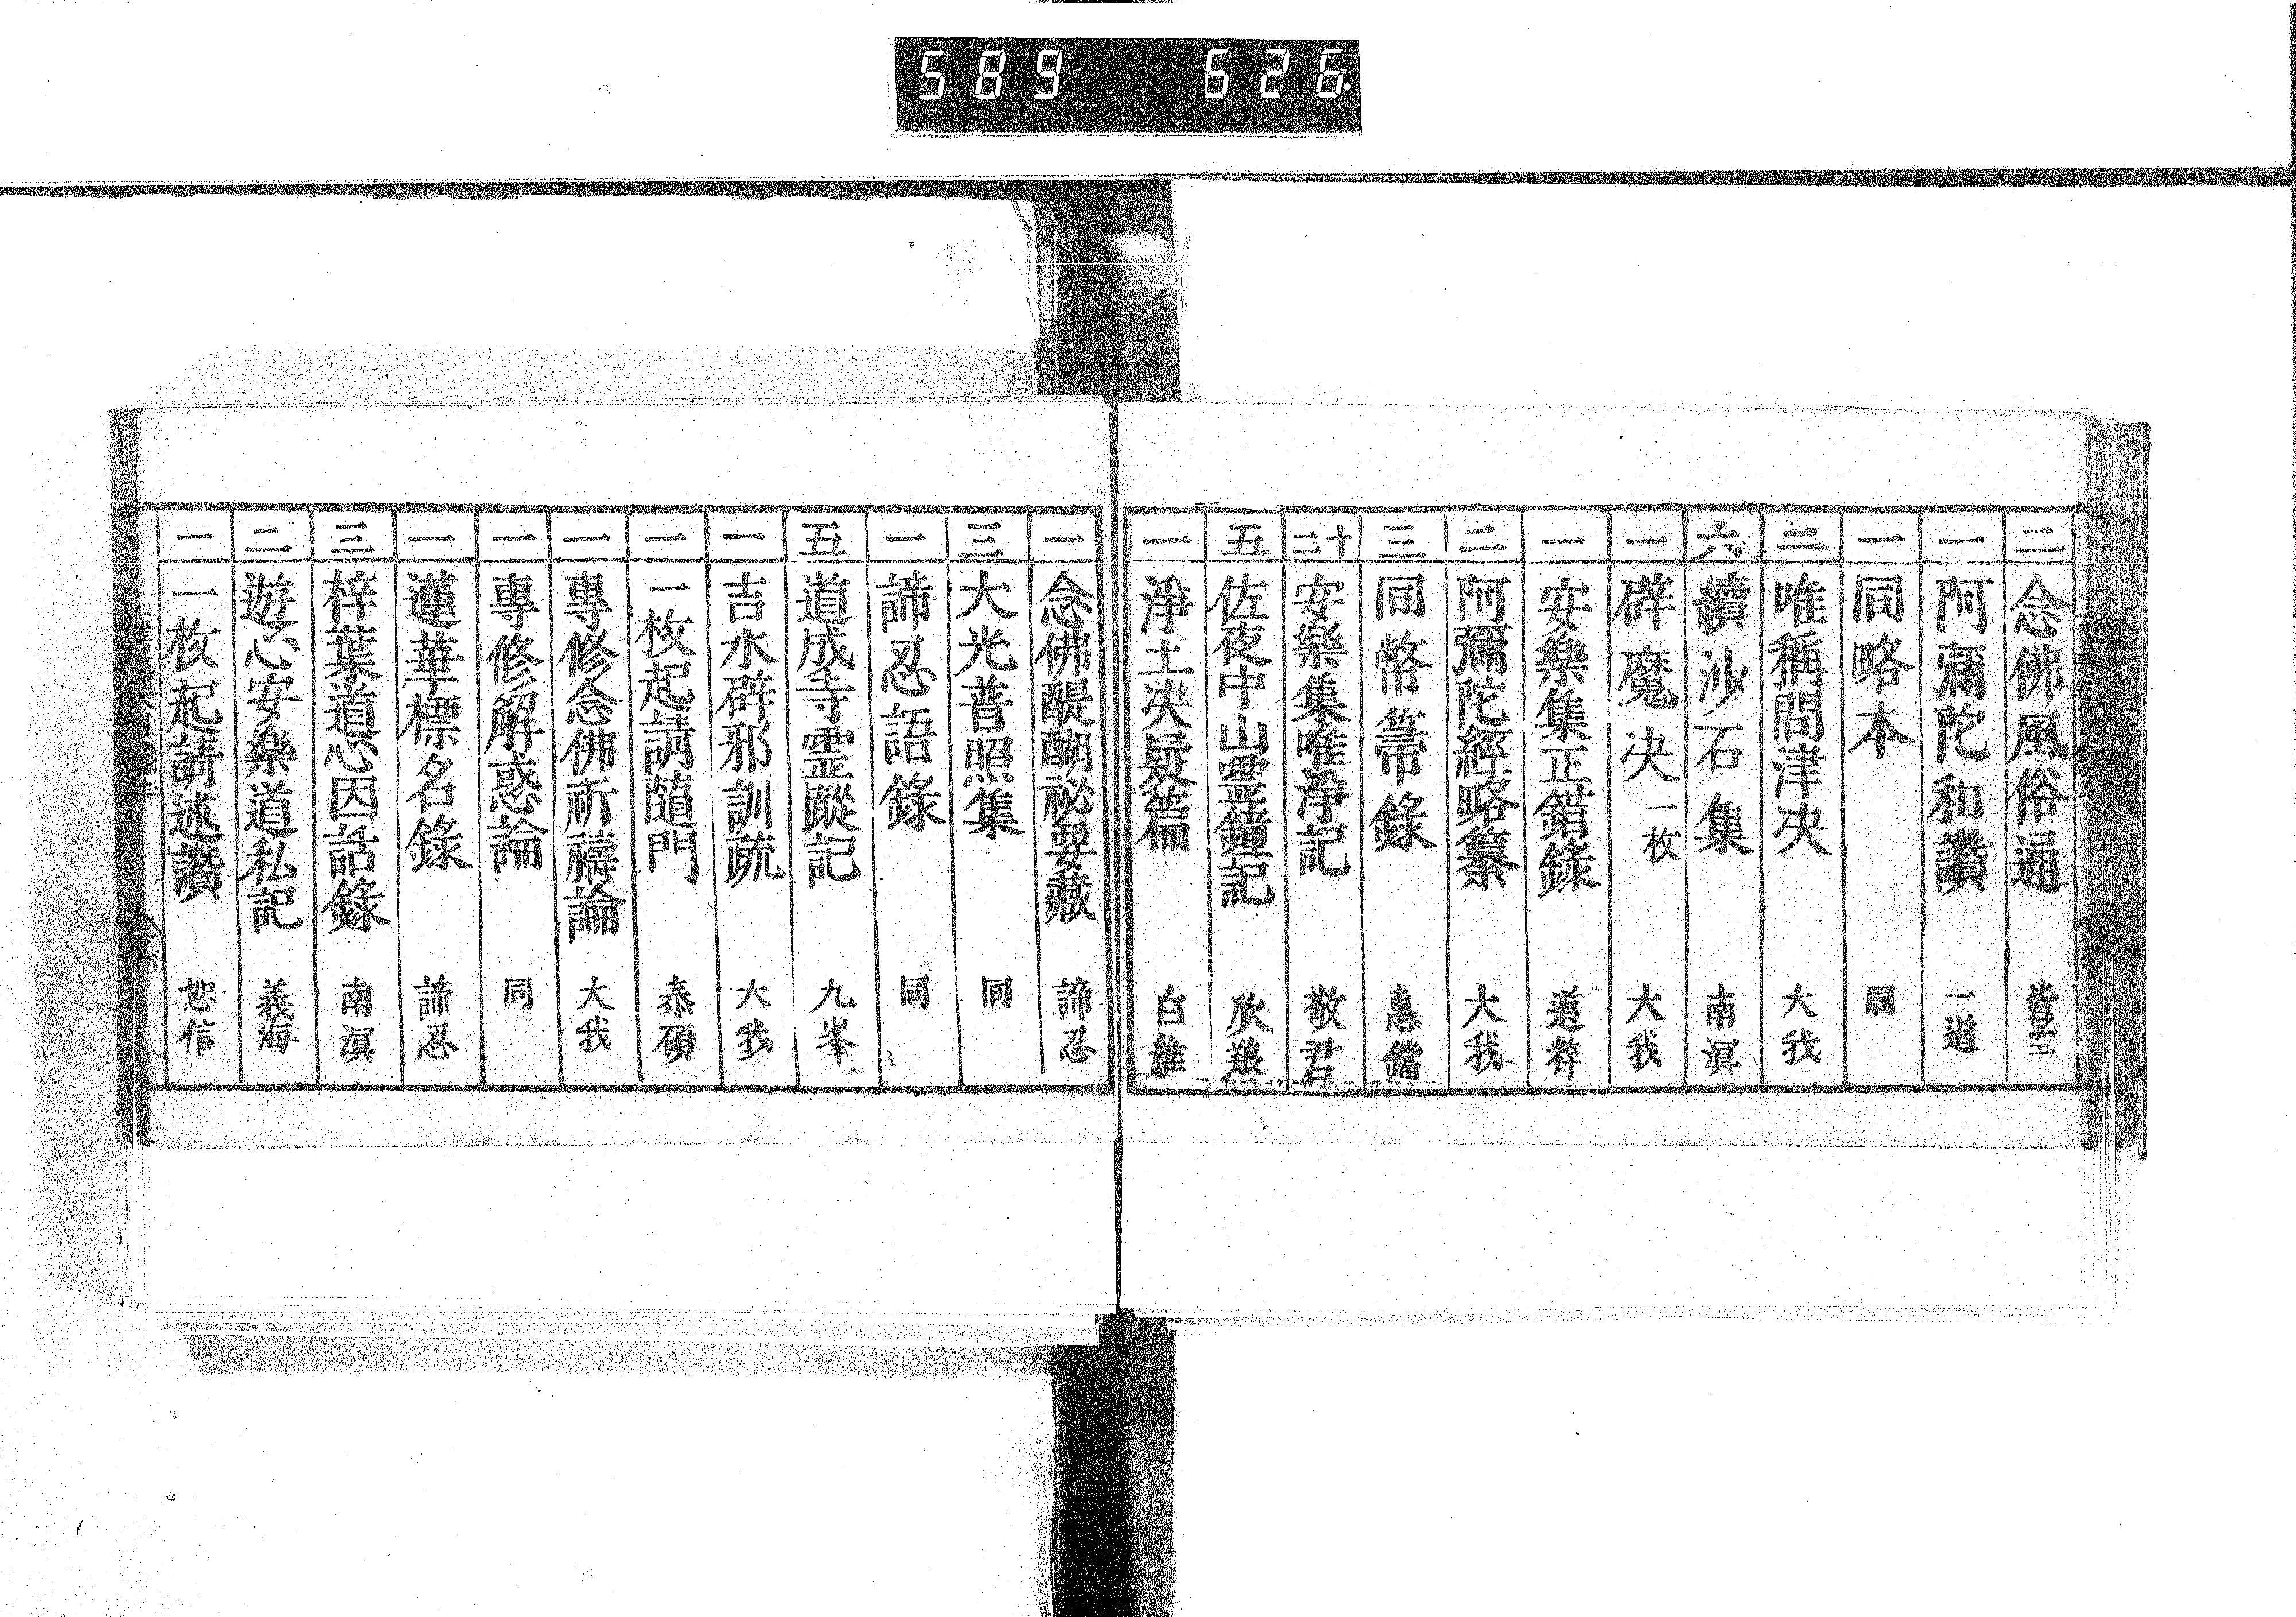 589 626.
二 念佛風俗通 皆空
一 阿彌陀和讚 一道
一 同略本 同
二 唯稱問津決 大我
六 續沙石集 南溟
一 辟魔決 一枚 大我
一 安樂集正錯錄 道粹
二 阿彌陀經略纂 大我
三 同幣箒錄 惠鐺
十二 安樂集唯淨記 敬君
五 佐夜中山靈鐘記 欣
一 淨土決疑篇 白雄
一 念佛醍醐祕要藏 諦忍
三 大光普照集 同
一 諦忍語錄 同
五 道成寺靈蹤記 九峯
一 吉水辟邪訓疏 大我
一 一枚起請隨門 泰碩
一 專修念佛祈禱論 大我
一 專修解惑論 同
一 蓮華標名錄 諦忍
三 梓葉道心因話錄 南溟
二 遊心安樂道私記 義海
二 一枚起請述讚 恕信